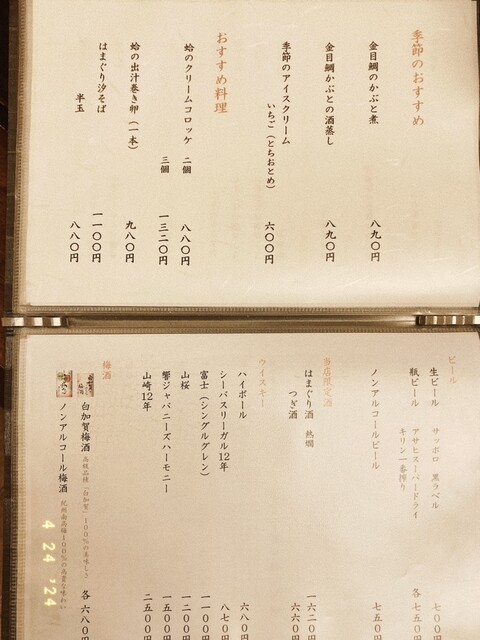 季節のおすすめ
金目鯛のかぶと煮 八九〇円
金目鯛かぶとの酒蒸し 八九〇円
季節のアイスクリーム
いちご（とちおとめ） 六〇〇円
おすすめ料理
蛤のクリームコロッケ 二個 八八〇円
三個 一三二〇円
蛤の出汁巻き卵（一本） 九八〇円
はまぐり汐そば 一一〇〇円
半玉 八八〇円
ビール
生ビール サッポロ 黒ラベル 七〇〇円
瓶ビール アサヒスーパードライ 各 七五〇円
キリン一番搾り
ノンアルコールビール 七五〇円
当店限定酒
はまぐり酒 熱燗 一六二〇円
つぎ酒 六六〇円
ウイスキー
ハイボール 六八〇円
シーバスリーガル12年 八七〇円
富士（シングルグレン） 一一〇〇円
山桜 一二〇〇円
響ジャパニーズハーモニー 一五〇〇円
山崎12年 二五〇〇円
梅酒
白加賀梅酒 高級品種「白加賀」100%の美味しさ 各 六八〇円
ノンアルコール梅酒 紀州南高梅100%の高貴な味わい
4 24 '24